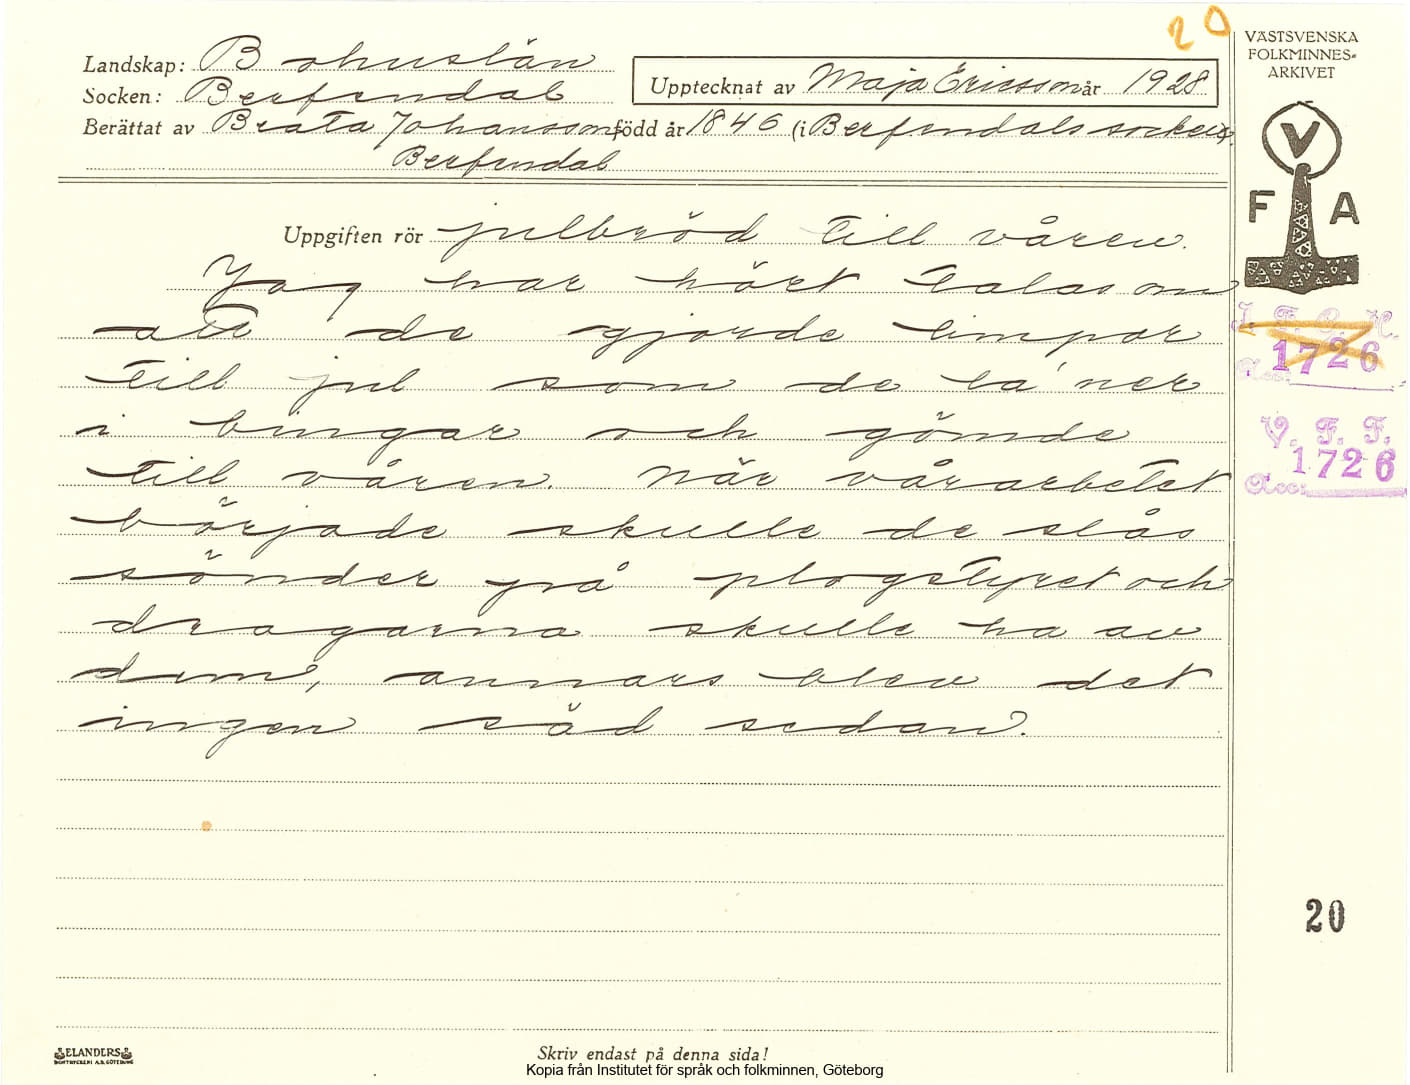 20
VÄSTSVENSKA
FOLKMINNES-
ARKIVET
Landskap: Bohuslän
Socken: Berfendal
Upptecknat av Maja Ericsson år 1928
Berättat av Beata Johansson född år 1846 (i Berfendals socken).
Berfendal
V
F A
Uppgiften rör julbröd till våren.
Jag har hört talas om
att de gjorde limpor
till jul som de la' ner
i bingar och gömde
till våren. När vårarbetet
började skulle de slås
sönder på plogstyret och
dragarna skulle ha av
dem, annars blev det
ingen säd sedan.
I. F. G. H.
Acc: 1726
V. F. F.
Acc: 1726
20
ELANDERS
BOKTRYCKERI A.B. GÖTEBORG
Skriv endast på denna sida!
Kopia från Institutet för språk och folkminnen, Göteborg